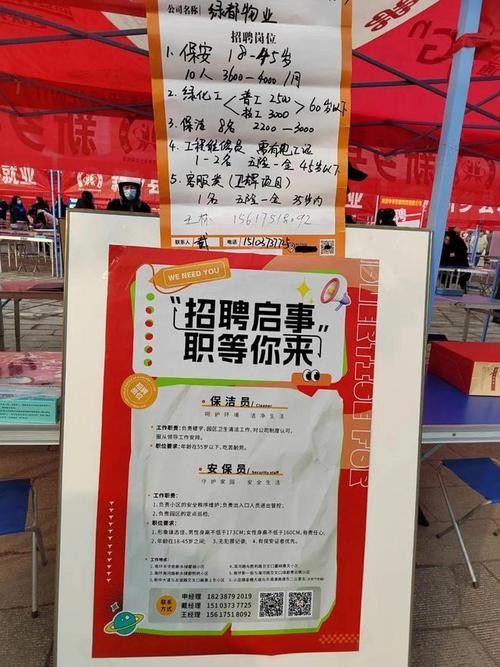 公司名称 绿都物业
招聘岗位
1. 保安 18-45岁
10人 3600-4000/月
2. 绿化工 普工 2500 技工 3000 60岁以下
3. 保洁 8名 2200-3000
1-2名 五险一金 45岁以下
5. 客服类
1名 五险一金
联系人 戴 电话 15103737725
WE NEED YOU
"招聘启事"
职等你来
保洁员/Cleaner
呵护环境 洁净生活
工作职责:负责楼宇、园区卫生清洁工作,对公司制度认可,
服从领导工作安排。
职位要求:年龄在55岁以下、吃苦耐劳。
安保员/Security staff
守护家园 安全生活
工作职责:
1.负责小区的安全秩序维护;负责出入口人员进出管控;
2.负责园区的定点巡检。
职位要求:
1.形象体态佳,男性身高不低于173CM;女性身高不低于160CM,有责任心;
2.年龄在18-45岁之间; 3.无犯罪记录; 4.有保安证者优先。
工作地点:
联系
方式
申经理 182 3879 2019
戴经理 151 0373 7725
王经理 156 1751 8092